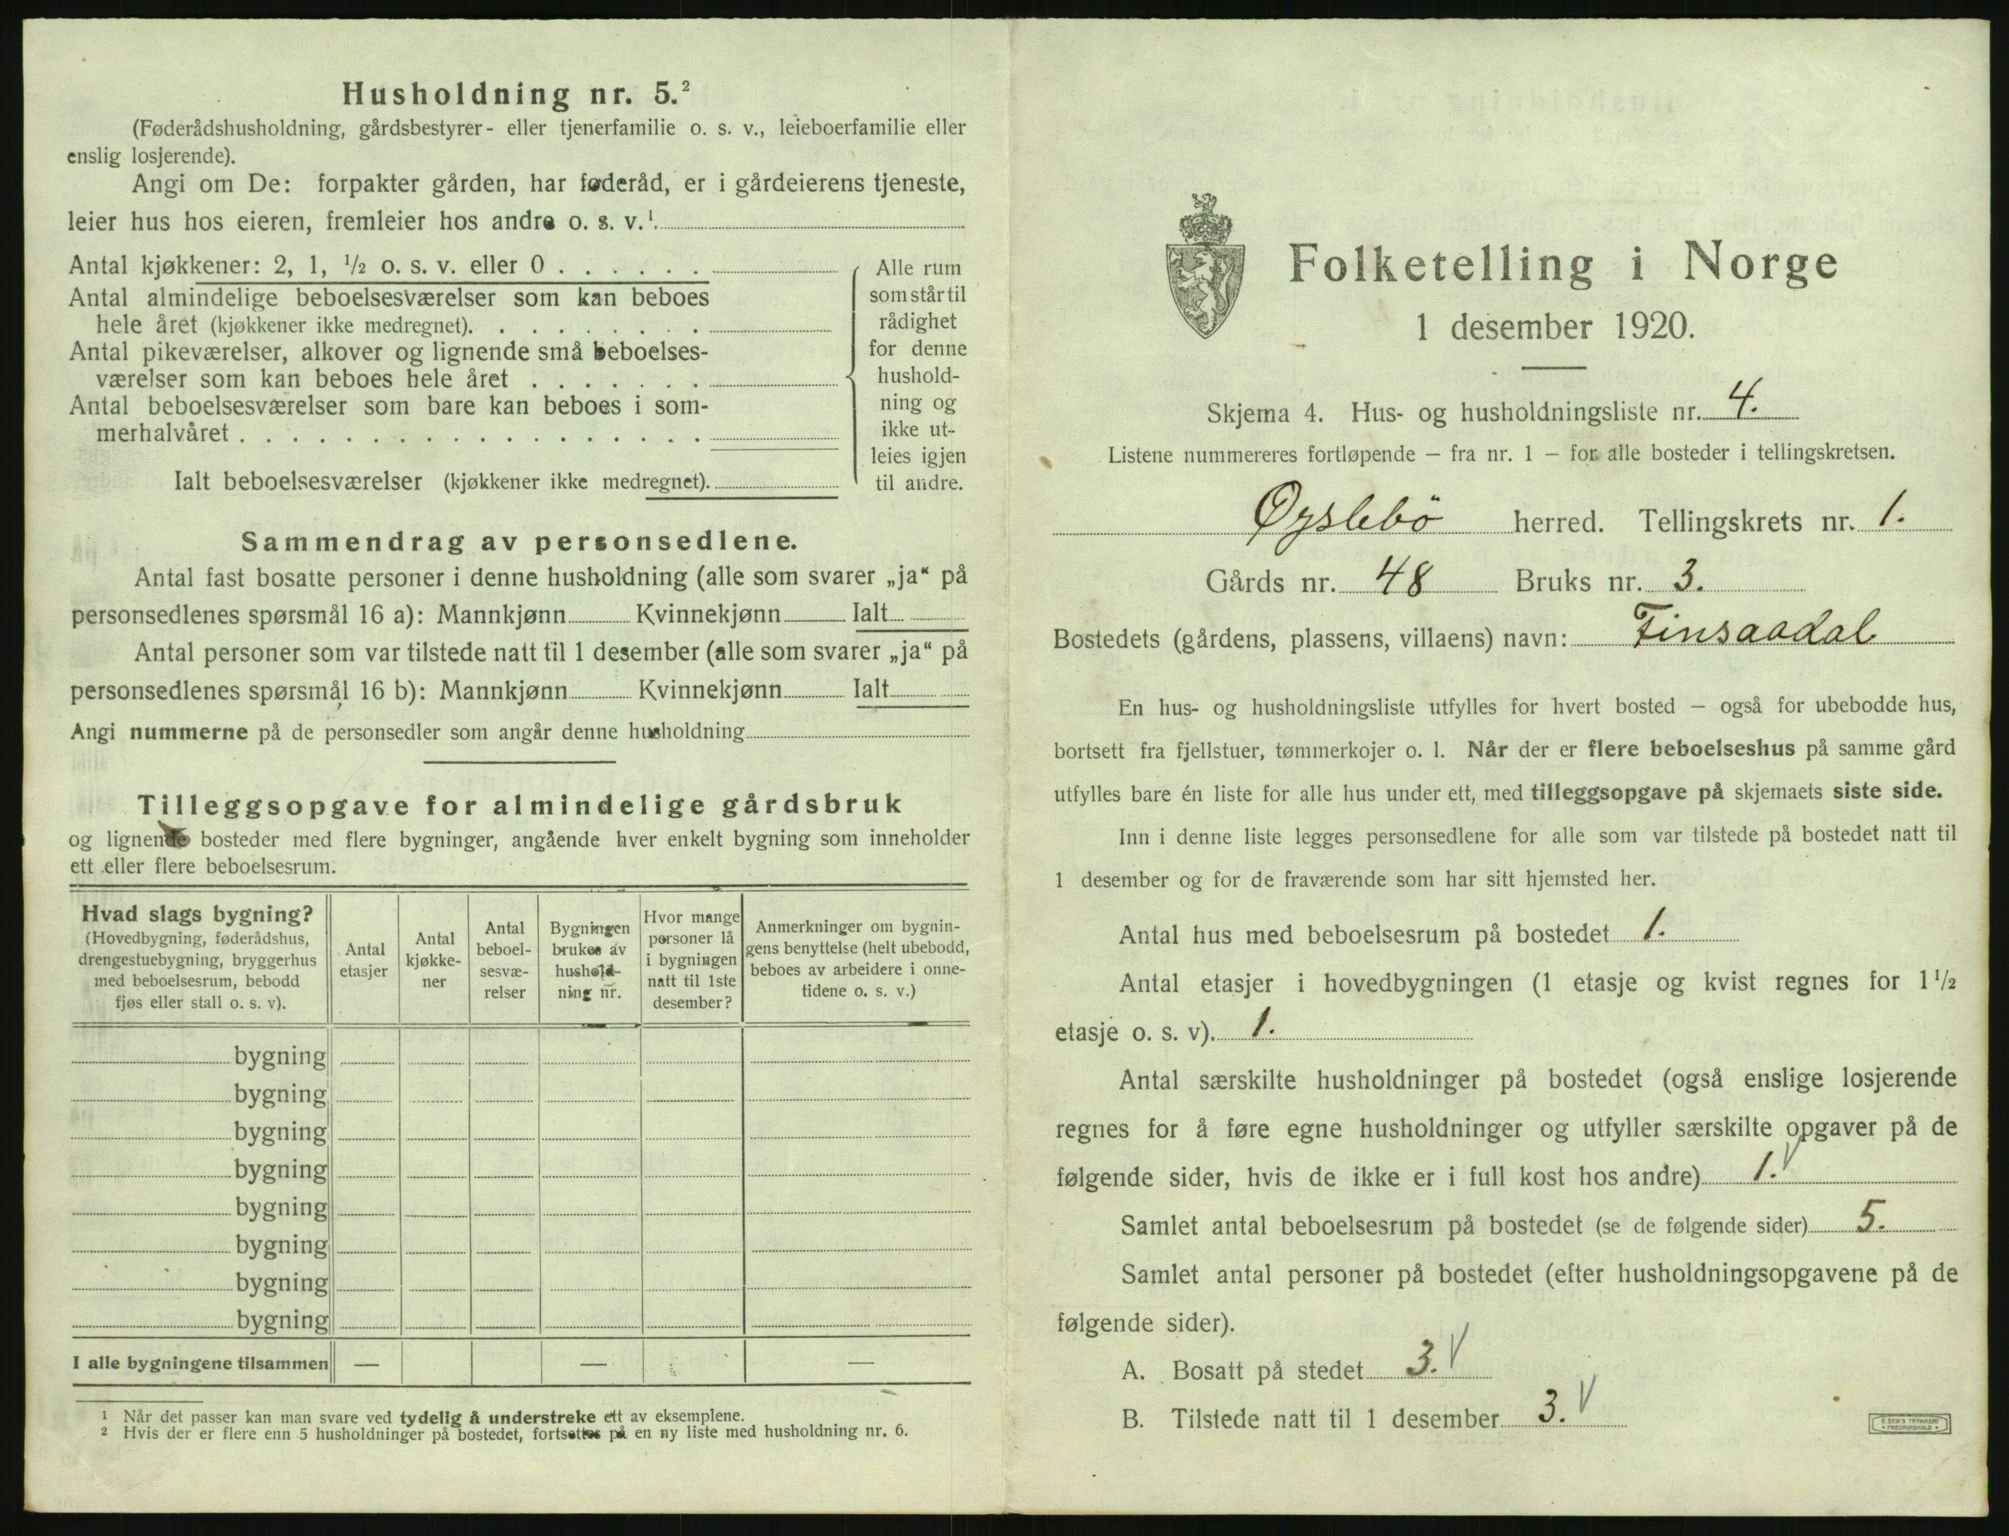 Husholdning nr. 5.²
(Føderådshusholdning, gårdsbestyrer- eller tjenerfamilie o. s. v., leieboerfamilie eller
enslig losjerende).
Angi om De: forpakter gården, har føderåd, er i gårdeierens tjeneste,
leier hus hos eieren, fremleier hos andre o. s. v.¹
Antal kjøkkener: 2, 1, ½ o. s. v. eller 0 . . . . . .
Antal almindelige beboelsesværelser som kan beboes
hele året (kjøkkener ikke medregnet). . . . . . . . .
Antal pikeværelser, alkover og lignende små beboelses-
værelser som kan beboes hele året . . . . . . .
Antal beboelsesværelser som bare kan beboes i som-
merhalvåret . . . . . . . . . . . . . . . . . .
Ialt beboelsesværelser (kjøkkener ikke medregnet).
Alle rum
som står til
rådighet
for denne
hushold-
ning og
ikke ut-
leies igjen
til andre.
Sammendrag av personsedlene.
Antal fast bosatte personer i denne husholdning (alle som svarer „ja“ på
personsedlenes spørsmål 16 a): Mannkjønn Kvinnekjønn Ialt
Antal personer som var tilstede natt til 1 desember (alle som svarer „ja“ på
personsedlenes spørsmål 16 b): Mannkjønn Kvinnekjønn Ialt
Angi nummerne på de personsedler som angår denne husholdning
Tilleggsopgave for almindelige gårdsbruk
og lignende bosteder med flere bygninger, angående hver enkelt bygning som inneholder
ett eller flere beboelsesrum.
Hvad slags bygning?
(Hovedbygning, føderådshus,
drengestuebygning, bryggerhus
med beboelsesrum, bebodd
fjøs eller stall o. s. v).
Antal
etasjer
Antal
kjøkke-
ner
Antal
beboel-
sesvæ-
relser
Bygningen
brukes av
hushold-
ning nr.
Hvor mange
personer lå
i bygningen
natt til 1ste
desember?
Anmerkninger om bygnin-
gens benyttelse (helt ubebodd,
beboes av arbeidere i onne-
tidene o. s. v.)
bygning
bygning
bygning
bygning
bygning
bygning
bygning
bygning
I alle bygningene tilsammen — — —
¹ Når det passer kan man svare ved tydelig å understreke ett av eksemplene.
² Hvis der er flere enn 5 husholdninger på bostedet, fortsettes på en ny liste med husholdning nr. 6.
Folketelling i Norge
1 desember 1920.
Skjema 4. Hus- og husholdningsliste nr. 4.
Listene nummereres fortløpende — fra nr. 1 — for alle bosteder i tellingskretsen.
Øyslebö herred. Tellingskrets nr. 1.
Gårds nr. 48 Bruks nr. 3.
Bostedets (gårdens, plassens, villaens) navn: Finsaadal
En hus- og husholdningsliste utfylles for hvert bosted — også for ubebodde hus,
bortsett fra fjellstuer, tømmerkojer o. l. Når der er flere beboelseshus på samme gård
utfylles bare én liste for alle hus under ett, med tilleggsopgave på skjemaets siste side.
Inn i denne liste legges personsedlene for alle som var tilstede på bostedet natt til
1 desember og for de fraværende som har sitt hjemsted her.
Antal hus med beboelsesrum på bostedet 1.
Antal etasjer i hovedbygningen (1 etasje og kvist regnes for 1½
etasje o. s. v). 1.
Antal særskilte husholdninger på bostedet (også enslige losjerende
regnes for å føre egne husholdninger og utfyller særskilte opgaver på de
følgende sider, hvis de ikke er i full kost hos andre) 1. V
Samlet antal beboelsesrum på bostedet (se de følgende sider) 5.
Samlet antal personer på bostedet (efter husholdningsopgavene på de
følgende sider).
A. Bosatt på stedet 3. V
B. Tilstede natt til 1 desember 3. V